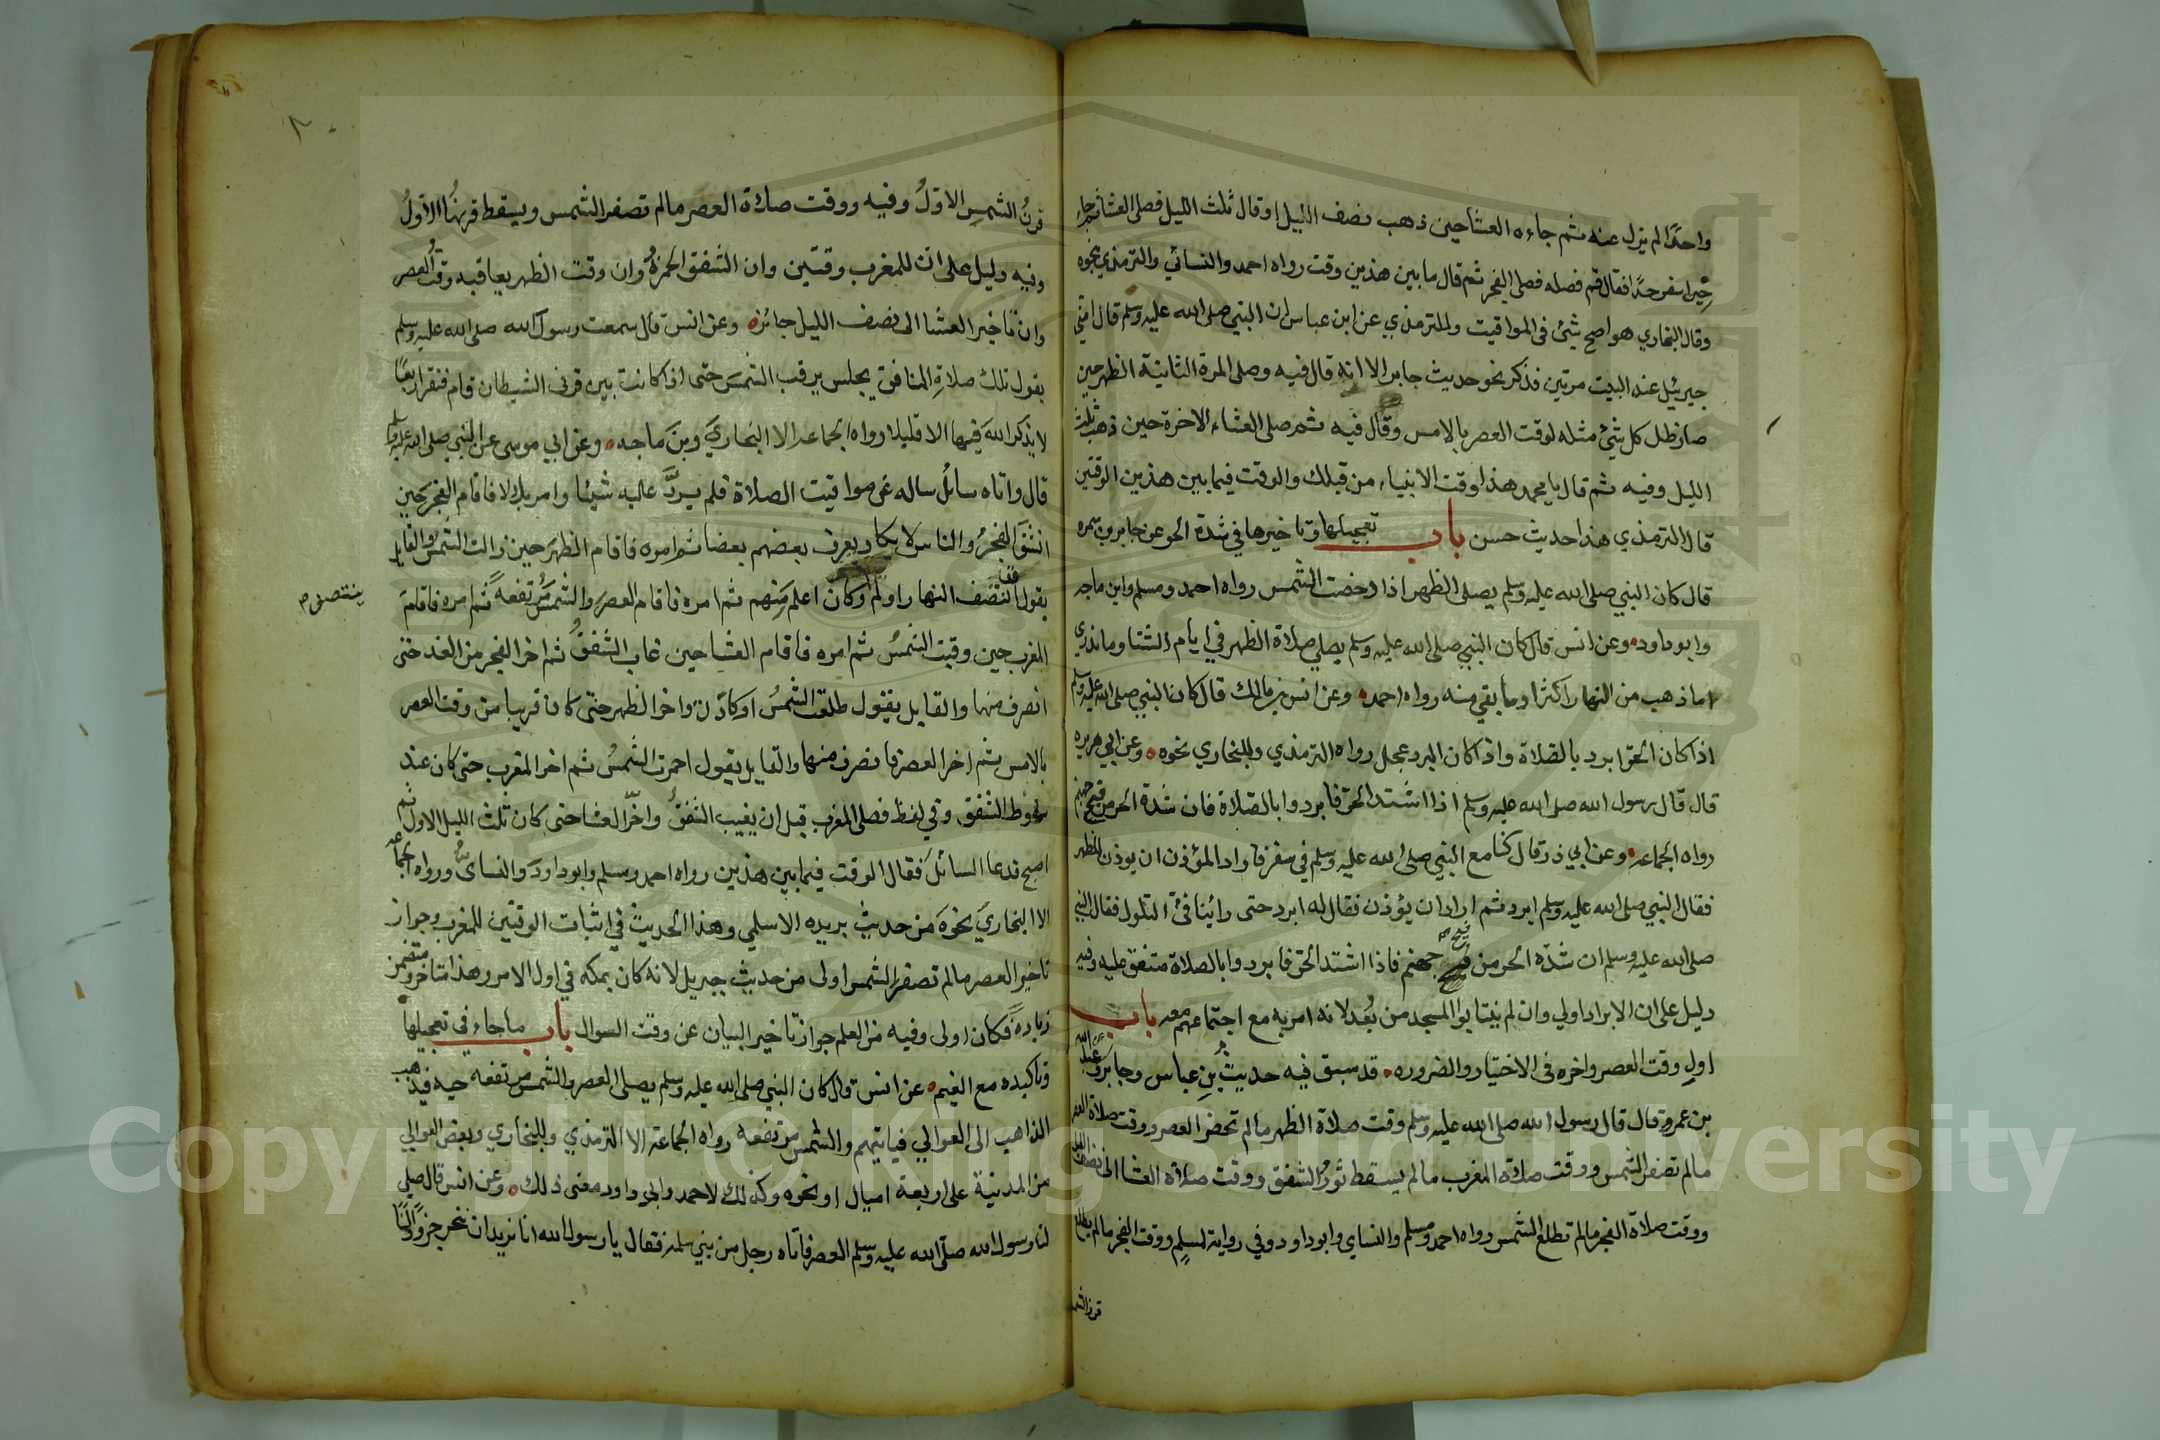 واحدا لم يزل عنه ثم جاءه العشا حين ذهب نصف الليل او قال ثلث الليل فصلى العشا ثم جاءه
حين اسفر جدا فقال قم فصله فصلى الفجر ثم قال ما بين هذين وقت رواه احمد والنسائي والترمذي بنحوه
وقال البخاري هو اصح شئ في المواقيت وللترمذي عن ابن عباس ان النبي صلى الله عليه وسلم قال امني
جبرئيل عند البيت مرتين فذكر نحو حديث جابر الا انه قال فيه وصلى المرة الثانية الظهر حين
صار ظل كل شئ مثله لوقت العصر بالامس وقال فيه ثم صلى العشاء الاخرة حين ذهب ثلث
الليل وفيه ثم قال يا محمد هذا وقت الانبياء من قبلك والوقت فيما بين هذين الوقتين
قال الترمذي هذا حديث حسن باب تعجيلها وتاخيرها في شدة الحر عن جابر بن سمره
قال كان النبي صلى الله عليه وسلم يصلى الظهر اذا دحضت الشمس رواه احمد ومسلم وابن ماجه
وابو داود وعن انس قال كان النبي صلى الله عليه وسلم يصلي صلاة الظهر في ايام الشتا وما ندري
اما ذهب من النهار اكثر او ما بقي منه رواه احمد وعن انس بن مالك قال كان النبي صلى الله عليه وسلم
اذا كان الحر ابرد بالصلاة واذا كان البرد عجل رواه الترمذي وللبخاري نحوه وعن ابي هريره
قال قال رسول الله صلى الله عليه وسلم اذا اشتد الحر فابردوا بالصلاة فان شدة الحر من فيح جهنم
رواه الجماعه وعن ابي ذر قال كنا مع النبي صلى الله عليه وسلم في سفر فاراد المؤذن ان يوذن للظهر
فقال النبي صلى الله عليه وسلم ابرد ثم اراد ان يؤذن فقال له ابرد حتى رائنا فئ التلول فقال النبي
صلى الله عليه وسلم ان شدة الحر من فيح جهنم فاذا اشتد الحر فابردوا بالصلاة متفق عليه وفيه
دليل على ان الابراد اولي وان لم ينتابوا المسجد من بُعد لانه امر به مع اجتماعهم معه باب
اول وقت العصر واخره في الاختيار والضروره قد سبق فيه حديث بن عباس وجابر وعن عبد الله
بن عمرو قال قال رسول الله صلى الله عليه وسلم وقت صلاة الظهر ما لم تحضر العصر ووقت صلاة العصر
ما لم تصفر الشمس ووقت صلاة المغرب ما لم يسقط ثور الشفق ووقت صلاة العشا الى نصف الليل
ووقت صلاة الفجر ما لم تطلع الشمس رواه احمد ومسلم والنساي وابو داود وفي رواية لمسلم ووقت الفجر ما لم يطلع
قرن الشمس
قرن الشمس الاول وفيه ووقت صلاة العصر ما لم تصفر الشمس ويسقط قرنها الاول
وفيه دليل على ان للمغرب وقتين وان الشفق الحمرة وان وقت الظهر يعاقبه وقت العصر
وان تاخير العشا الى نصف الليل جائز وعن انس قال سمعت رسول الله صلى الله عليه وسلم
يقول تلك صلاة المنافق يجلس يرقب الشمس حتى اذا كانت بين قرني الشيطان قام فنقر اربعا
لا يذكر الله فيها الا قليلا رواه الجماعه الا البخاري وبن ماجه وعن ابي موسى عن النبي صلى الله عليه وسلم
قال واتاه سائل ساله عن مواقيت الصلاة فلم يرد عليه شيئا وامر بلالا فاقام الفجر حين
انشق الفجر والناس لا يكاد يعرف بعضهم بعضا ثم امره فاقام الظهر حين زالت الشمس والقايل
يقول انتصف النهار اولم وكان اعلم منهم ثم امره فاقام العصر والشمس مرتفعة ثم امره فاقام
ينتصف م
المغرب حين وقبت الشمس ثم امره فاقام العشا حين غاب الشفق ثم اخر الفجر من الغد حتى
انصرف منها والقايل يقول طلعت الشمس او كادت واخر الظهر حتى كان قريبا من وقت العصر
بالامس ثم اخر العصر فانصرف منها والقايل يقول احمرت الشمس ثم اخر المغرب حتى كان عند
سقوط الشفق وفي لفظ فصلى المغرب قبل ان يغيب الشفق واخر العشا حتى كان ثلث الليل الاول ثم
اصبح فدعا السائل فقال الوقت فيما بين هذين رواه احمد ومسلم وابو داود والنساي ورواه الجماعه
الا البخاري نحوه من حديث بريده الاسلمي وهذا الحديث في اثبات الوقتين للمغرب وجواز
تاخير العصر ما لم تصفر الشمس اولى من حديث جبريل لانه كان بمكه في اول الامر وهذا متاخر ومتضمن
زيادة فكان اولى وفيه من العلم جواز تاخير البيان عن وقت السوال باب ما جاء في تعجيلها
وتاكيده مع الغيم عن انس قال كان النبي صلى الله عليه وسلم يصلى العصر والشمس مرتفعه حيه فيذهب
الذاهب الى العوالي فياتيهم والشمس مرتفعة رواه الجماعة الا الترمذي وللبخاري وبعض العوالي
من المدينة على اربعة اميال او نحوه وكذلك لاحمد وابي داود معنى ذلك وعن انس قال صلى
لنا رسول الله صلى الله عليه وسلم العصر فاتاه رجل من بني سلمة فقال يا رسول الله انا نريد ان ننحر جزورا لنا
Copyright © King Saud University